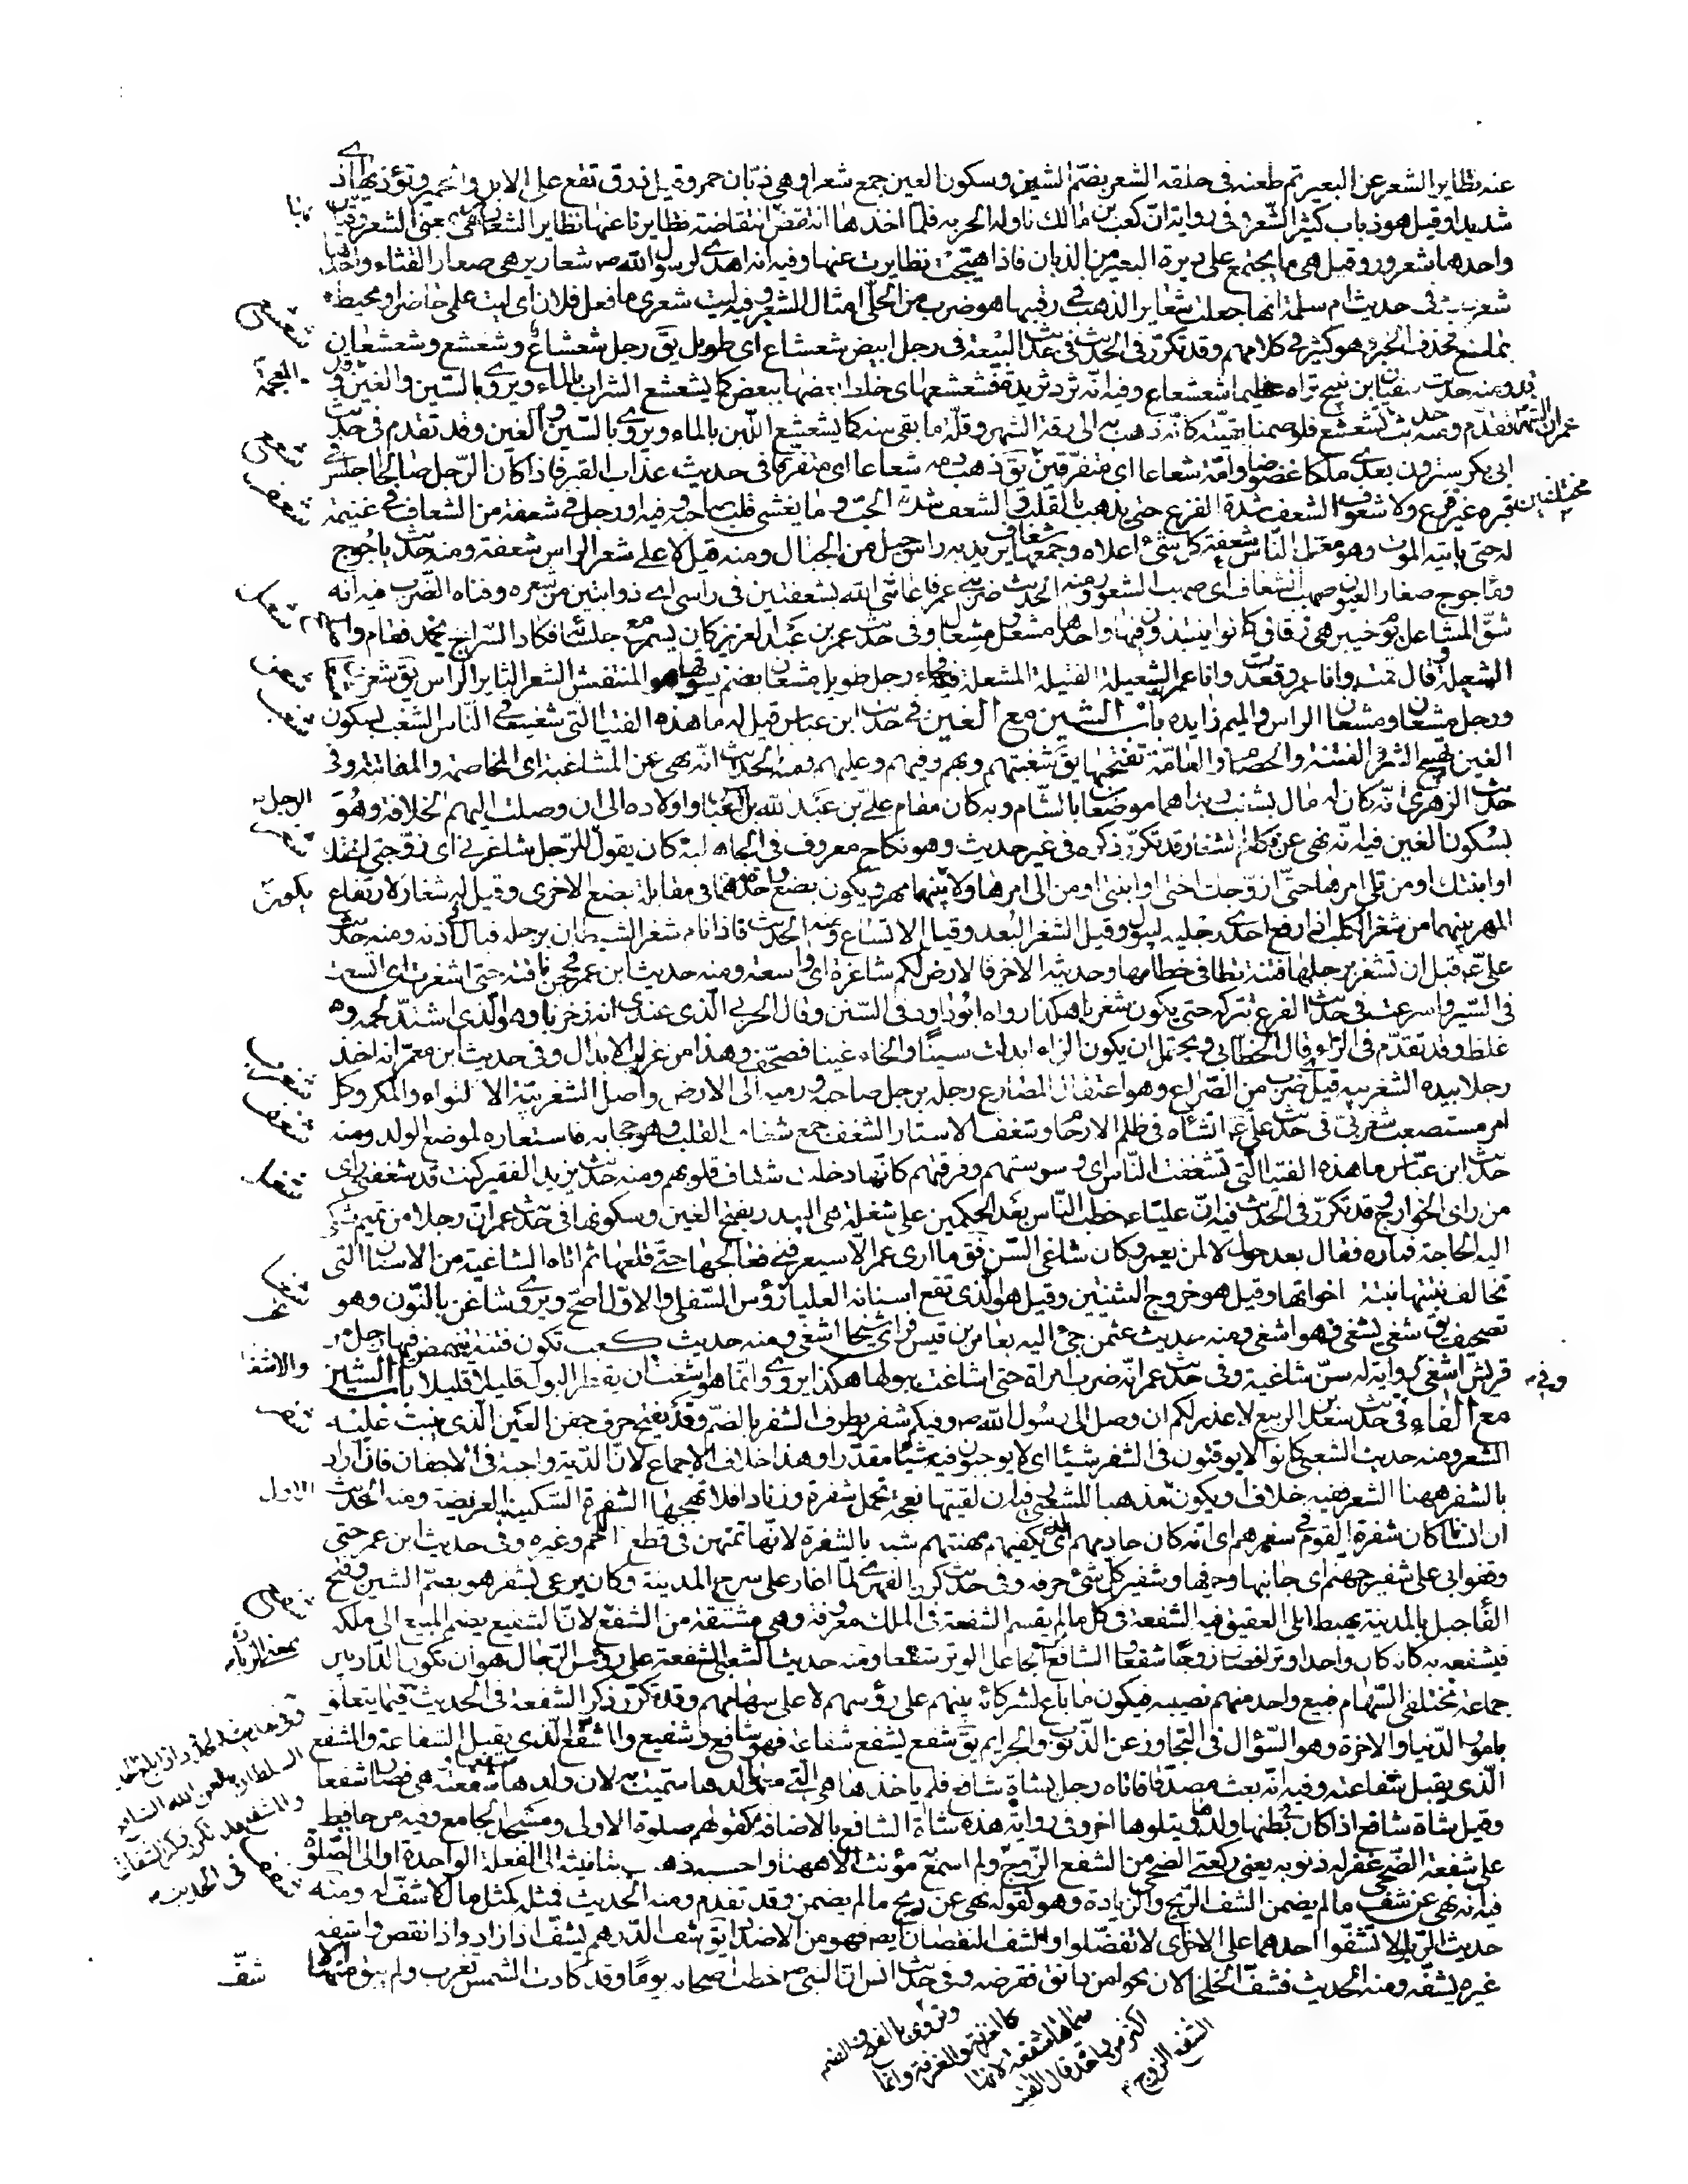 عنه تطاير الشعر عن البعير ثم طعنه فى حلقه الشعر بضمّ الشين وسكون العين جمع شعرا وهى ذبّان حمر وقيل زرق تقع على الابل والحمير وتؤذيها اذى
شديدا وقيل هو ذباب كثير الشّعر وفى رواية انّ كعب بن مالك ناوله الحربه فلما اخذها انتفض انتفاضة تطايرنا عنها تطاير الشعارير هى بمعنى الشعر وقياس
واحدها شعرور وقيل هى ما يجتمع على دبرة البعير من الذبان فاذا هيّجت تطايرت عنها وفيه انه اهدى لرسول الله صم شعارير هى صغار القثاء واحدها
شعرور فى حديث ام سلمة انها جعلت شعاير الذهب فى رقبتها هو ضرب من الحلّى امثال الشعير وفيه ليت شعرى ما فعل فلان اى ليت علمى حاضر او محيط
بما صنع فحذف الخبر وهو كثير فى كلامهم وقد تكرّر فى الحديث فى حدث البيعة فى رجل ابيض شعشاع اى طويل يق رجل شعشاع وشعشع وشعشعان
ومنه حديث سفين ابن نبيح تراه عظيما شعشعا وفيه انّه ثرد ثريدة فشعشعها اى خلط بعضها ببعض كما يشعشع الشراب بالماء ويروى بالسّين والغين وقد
تقدّم ومنه حديث تشعشع فلو صمنا بقيته كانّه ذهب به الى رقة الشهر وقلّة ما بقى منه كما يشعشع اللّبن بالماء ويروى بالسّين والعين وقد تقدم فى حدث
ابى بكر سترون بعدى ملكا عضوضا وامّة شعاعا اى متفرّقين يق ذهب دمه شعاعا اى متفرقا فى حديث عذاب القبر فاذا كان الرّجل صالحا جلس فى
قبره غير فزع ولا مشعوف الشعف شدة الفزع حتى يذهب بالقلب والشعف شدة الحبّ وما يغشى قلب صاحبه وفيه او رجل فى شعفة من الشعاف فى غنيمة
له حتى ياتيه الموت وهو معتزل النّاس شعفة كل شئ اعلاه وجمعها شعاف يريد به راس جبل من الجبال ومنه قيل لاعلى شعر الراس شعفة ومنه حدث ياجوج
وماجوج صغار العيون صهب الشعاف اى صهب الشعور ومنه الحدث ضربنى عمر فاغاثنى الله بشعفتين فى راسى اى ذوابتين من شعره وقتاه الضّرب فيه انه
شقّ المشاعل يوم خيبر هى زقاق كانوا ينتبذون فيها واحدها مشعل ومشعال وفى حدث عمر بن عبد العزيز كان يسمر مع جلسائه فكاد السّراج يخمد فقام واصلح
الشعيلة وقال قمت وانا عمر وقعدت وانا عمر الشعيلة الفتيلة المشعلة فجاء رجل طويل مشعانّ بغنم يسوقها هو المنتفش الشعر الثاير الراس يق شعر
ورجل مشعان ومشعان الراس والميم زايده باب الشين مع الغين فى حدث ابن عباس قيل له ما هذه الفتيا التى شغبت فى النّاس الشغب بسكون
الغين تهييج الشر والفتنة والخصام والعامّة تفتحها يق شغبتهم وبهم وفيهم وعليهم ومنه الحدث انّه نهى عن المشاغبة اى المخاصمة والمفاتنة وفى
حدث الزهرى انّه كان له مال بشغب وبدا هما موضعان بالشّام وبه كان مقام علىّ بن عبد الله بن العبّاس واولاده الى ان وصلت اليهم الخلافة وهو
بسكون الغين فيه انّه نهى عن نكاح الشغار قد تكرّر ذكره فى غير حديث وهو نكاح معروف فى الجاهلية كان يقول للرّجل شاغرنى اى زوّجنى اختك
او ابنتك او من تلى امرها حتّى ازوّجك اختى او ابنتى او من الى امرها ولا يكون بينهما مهر ويكون بضع واحدة منهما فى مقابلة بضع الاخرى وقيل له شغار لارتفاع
المهر بينهما من شغر الكلب اذا رفع احدى رجليه ليبول وقيل الشغر البُعد وقيل الاتساع ومنه الحدث فاذا نام شغر الشيطان برجله فبال فى اذنه ومنه حدث
علىّ ع قبل ان تشغر برجلها فتنة تطا فى خطامها وحديثه الاخر فالارض لكم شاغرة اى واسعة ومنه حديث ابن عمر فحجن ناقته حتى اشغرت اى اتسعت
فى السّير واسرعت فى حدث الفرع تتركه حتى يكون شغزبا هكذا رواه ابو داود فى السّنن وقال الحربى الّذى عندى انه زخزبا وهو الّذى اشتدّ لحمه وهو
غلظ وقد تقدّم فى الزاء قال الخطابى ويحتمل ان يكون الزاء ابدلت سينًا والخاء غينا فصحّف وهذا من غرايب الابدال وفى حديث ابن معمّر انه اخذ
رجلا بيده الشغزبيه قيل هى ضرب من الصّراع وهو اعتقال المصارع رجله برجل صاحبه ورميه الى الارض واصل الشغزبيّة الالتواء والمكر وكل
امر مستصعب شغزبىّ فى حدث علىّ ع انشاه فى ظلم الارحام وشغف الاستار الشغف جمع شغاف القلب وهو حجابه فاستعاره لموضع الولد ومنه
حدث ابن عبّاس ما هذه الفتيا التّى تشغفت النّاس اى وسوستهم وفرقتهم كانّها دخلت شغاف قلوبهم ومنه حدث يزيد الفقير كنت قد شغفنى راى
من راى الخوارج قد تكرّر فى الحدث فيه انّ عليّا ع خطب النّاس بعد الحكمين على شغلة هى البيدر بفتح الغين وسكونها فى حدث عمر انّ رجلا من تميم شكى
اليه الحاجة فماره فقال بعد حول لالمنّ بعمر وكان شاغى السّن فق ما ارى عمر الّا سيعرفنى فعالجها حتّى قلعها ثم اتاه الشاغية من الاسنان التى
تخالف نبتتها نبتة اخواتها وقيل هو خروج الثنيتين وقيل هو الّذى تقع اسنانه العليا على رؤس السّفلى والاوّل اصحّ ويروى شاغن بالنّون وهو
تصحيف يق شغى يشغى فهو اشغى ومنه حديث عثمن جئ اليه بعامر بن قيس فراى شيخا اشغى ومنه حديث كعب تكون فتنة ينهض فيها رجل من
قريش اشغى وفى رواية له سنّ شاغية وفى حدث عمر انّه ضرب امراة حتى اشاغت ببولها هكذا يروى وانّما هو اشغت ان يقطر البول قليلا قليلا باب الشين
مع الفاء فى حدث سعد بن الربيع لا عذر لكم ان وصل الى رسول الله صم وفيكم شفر يطرف الشفر بالضّم وقد يفتح حرف جفن العين الّذى ينبت عليه
الشعر ومنه حديث الشعبى كانوا لا يوقتون فى الشفر شيئا اى لا يوجبون فيه شيئا مقدّرا وهذا خلاف الاجماع لانّ الدّية واجبة فى الاجفان فان اراد
بالشفر ههنا الشعر ففيه خلاف او يكون مذهبا للشعبى فيه ان لقيتها نعجة تحمل شفرة وزنادا فلا تهجها الشفرة السّكين العريضة ومنه الحدث
ان انسا كان شفرة القوم فى سفرهم اى انّه كان خادمهم الّذى يكفيهم مهنتهم شبه بالشفرة لانّها تمتهن فى قطع اللحم وغيره وفى حديث ابن عمر حتى
وقفوا بى على شفير جهنم اى جانبها وحرفها وشفير كلّ شئ حرفه وفى حدث كرز الفهرى لمّا اغار على سرح المدينة وكان يرعى بشفر هو بضمّ الشين وفتح
الفا جبل بالمدينة يهبط الى العقيق فيه الشفعة فى كل ما لم يقسم الشفعة فى الملك معروفة وهى مشتقة من الشفع لانّ الشفيع يضم المبيع الى ملكه
فيشفعه به كانه كان واحدا وترا فصار زوجًا شفعًا والشافع الجاعل الوتر شفعا ومنه حديث الشعبى الشفعة على رؤس الرّجال هو ان تكون الدّار بين
جماعة مختلفى السّهام فيبيع واحد منهم نصيبه فيكون ما باع لشركائه بينهم على رؤسهم لا على سهامهم وقد تكرّر ذكر الشفعة فى الحديث فيما يتعلق
بامور الدّنيا والاخرة وهو السّؤال فى التجاوز عن الذّنوب والجرايم يق شفع يشفع شفاعة فهو شافع وشفيع والمشفّع الّذى يقبل الشفاعة والمشفع
الّذى يقبل شفاعته وفيه انّه بعث مصدّقا فاتاه رجل بشاة شافع فلم ياخذها هى التى معها ولدها سمّيت به لان ولدها شفعها وشفعته هى فصارا شفعا
وقيل شاة شافع اذا كان فى بطنها ولدها ويتلوها اخر وفى رواية هذه شاة الشافع بالاضافة كقولهم صلوة الاولى ومسجد الجامع وفيه من حافظ
على شفعة الضّحى غفر له ذنوبه يعنى ركعتى الضحى من الشفع الزّوج ولم اسمع به مؤنثا الا ههنا واحسبه ذهب بتانيثه الى الفعلة الواحدة او الى الصّلوة
فيه انه نهى عن شفّ ما لم يضمن الشف الرّبح والزيادة وهو كقوله نهى عن ربح ما لم يضمن وقد تقدم ومنه الحديث فمثله كمثل مال لا شفّ له ومنه
حديث الرّبا ولا تشفّوا احدهما على الاخر اى لا تفضّلوا والشف النقصان ايضا فهو من الاضداد يق شف الدّرهم يشفّ اذا زاد واذا نقص واشفه
غيره يشفّه ومنه الحديث فشفّ الخلخالان نحوا من دانق فقرضه وفى حدث انس انّ النبى صم خطب اصحابه يوما وقد كادت الشمس تغرب ولم يبق منها الا
شفّ